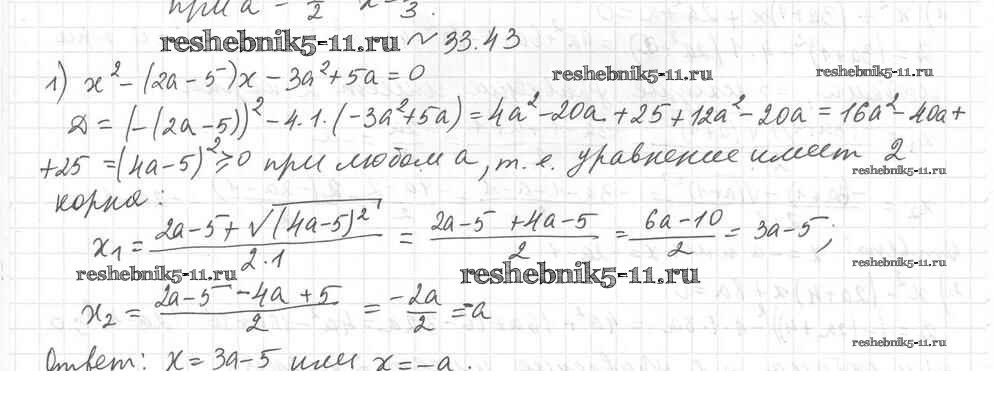 при a = 5/2 x = 5/3.
reshebnik5-11.ru ~ 33.43
1) x² – (2a – 5)x – 3a² + 5a = 0
reshebnik5-11.ru
reshebnik5-11.ru
Д = (–(2a – 5))² – 4·1·(–3a² + 5a) = 4a² – 20a + 25 + 12a² – 20a = 16a² – 40a +
+ 25 = (4a – 5)² ≥ 0 при любом a, т. е. уравнение имеет 2
reshebnik5-11.ru
корня:
x₁ = (2a – 5 + √(4a – 5)²)/(2·1) = (2a – 5 + 4a – 5)/2 = (6a – 10)/2 = 3a – 5;
reshebnik5-11.ru
reshebnik5-11.ru
reshebnik5-11.ru
x₂ = (2a – 5 – 4a + 5)/2 = –2a/2 = –a
reshebnik5-11.ru
Ответ: x = 3a – 5 или x = –a.